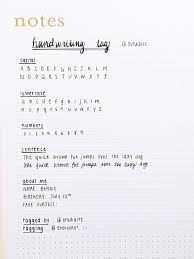 notes
handwriting tag
capital
A B C D E F G H I J K L M
N O P Q R S T U V W X Y Z
lowercase
a b c d e f g h i j k l m
n o p q r s t u v w x y z
numbers
0 1 2 3 4 5 6 7 8 9
sentence
The quick brown fox jumps over the lazy dog
The quick brown fox jumps over the lazy dog
about me
NAME:
BIRTHDAY: JULY
FAVE SUBJECT:
tagged by @
tagging @ everyone!